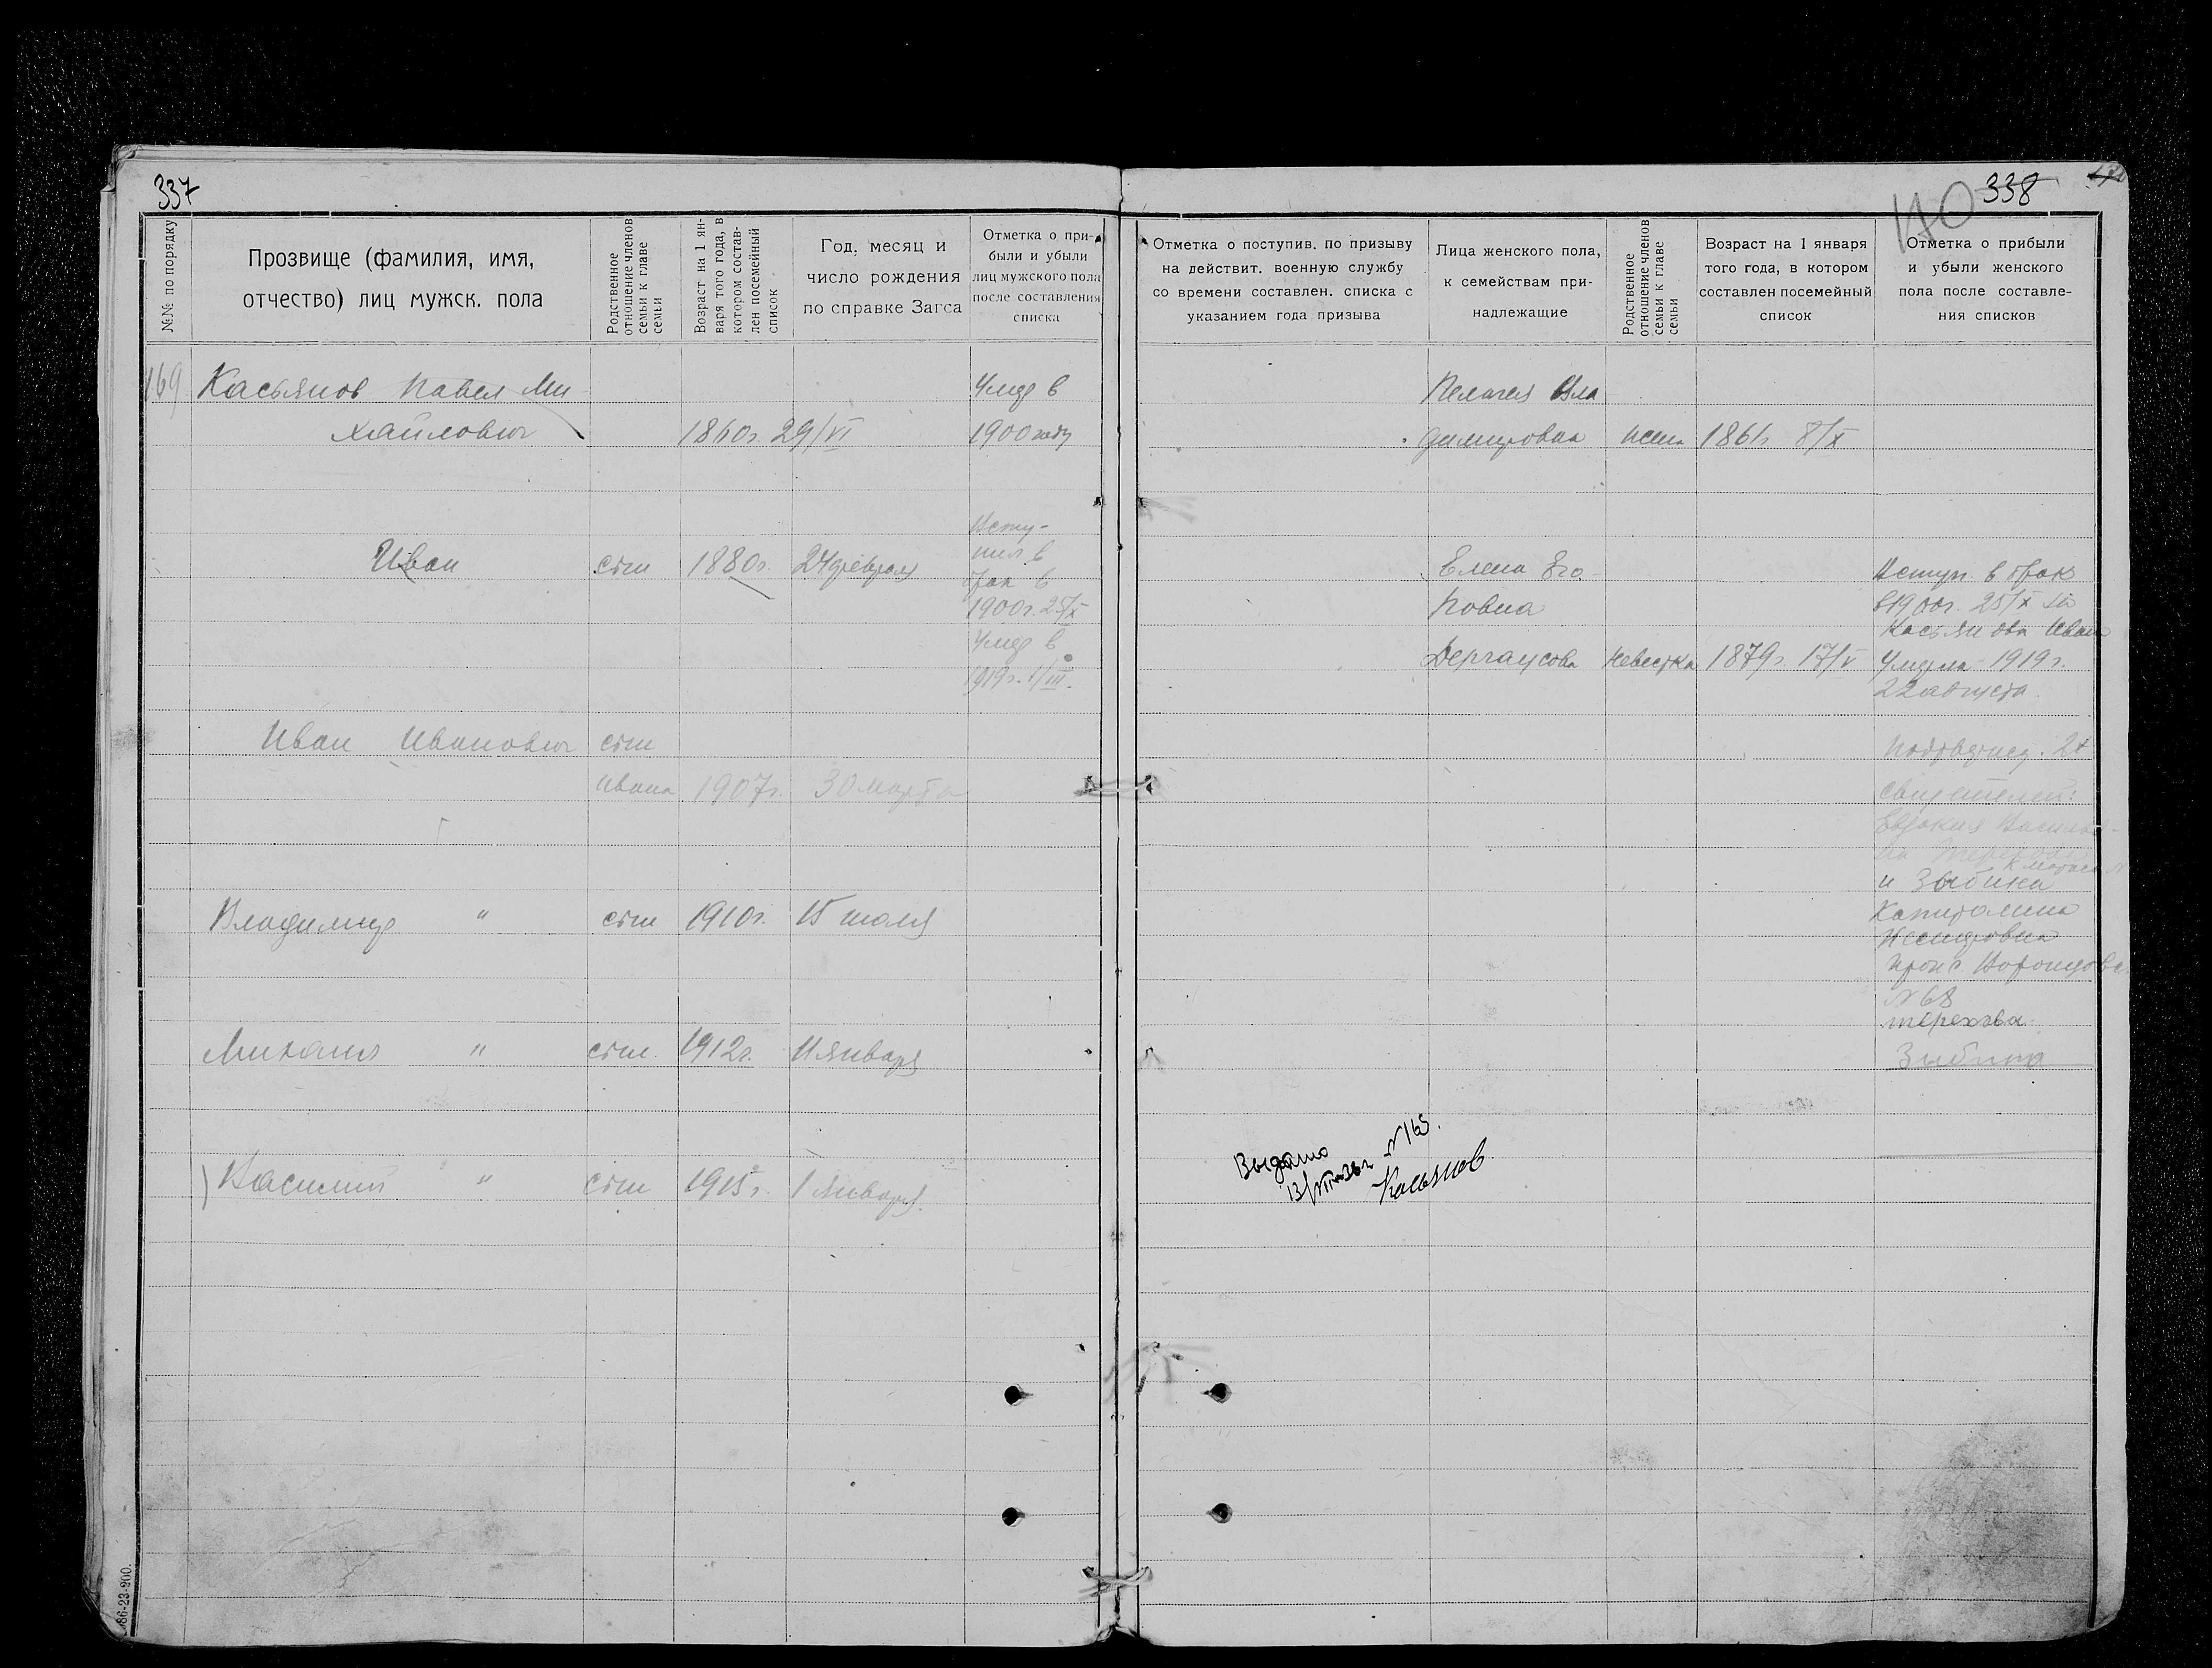 337
№№ по порядку
Прозвище (фамилия, имя,
отчество) лиц мужск. пола
Родственное
отношение членов
семьи к главе
семьи
Возраст на 1 ян-
варя того года, в
котором состав-
лен посемейный
список
Год, месяц и
число рождения
по справке Загса
Отметка о при-
были и убыли
лиц мужского пола
после составления
списка
169 Касьянов Павел Ми-
хайлович 1860г. 29/VI
Умер в
1900 году
Иван сын 1880г. 24 февраля
Всту-
пил в
брак в
1900г. 25/X
Умер в
1919г. 1/III.
Иван Иванович сын
Ивана 1907г. 30 марта
Владимир " сын 1910г. 15 июля
Михаил " сын. 1912г. 11 января
Василий " сын 1915г. 1 января.
86-23-900.
338
170
Отметка о поступив. по призыву
на действит. военную службу
со времени составлен. списка с
указанием года призыва
Лица женского пола,
к семействам при-
надлежащие
Родственное
отношение членов
семьи к главе
семьи
Возраст на 1 января
того года, в котором
составлен посемейный
список
Отметка о прибыли
и убыли женского
пола после составле-
ния списков
Пелагея Вла-
димировна жена 1861г. 8/X
Елена Его-
ровна
Дергаусова невестка 1879г. 17/V
Вступ. в брак
в 1900г. 25/X за
Касьянова Ивана
Умерла 1919г.
22 августа.
2х
свидетелей:
Евдокия
и Зыбина
Капитолина
N 68
Терехова
Зыбина
Выдано N 165.
13/VII-36г.
Касьянов